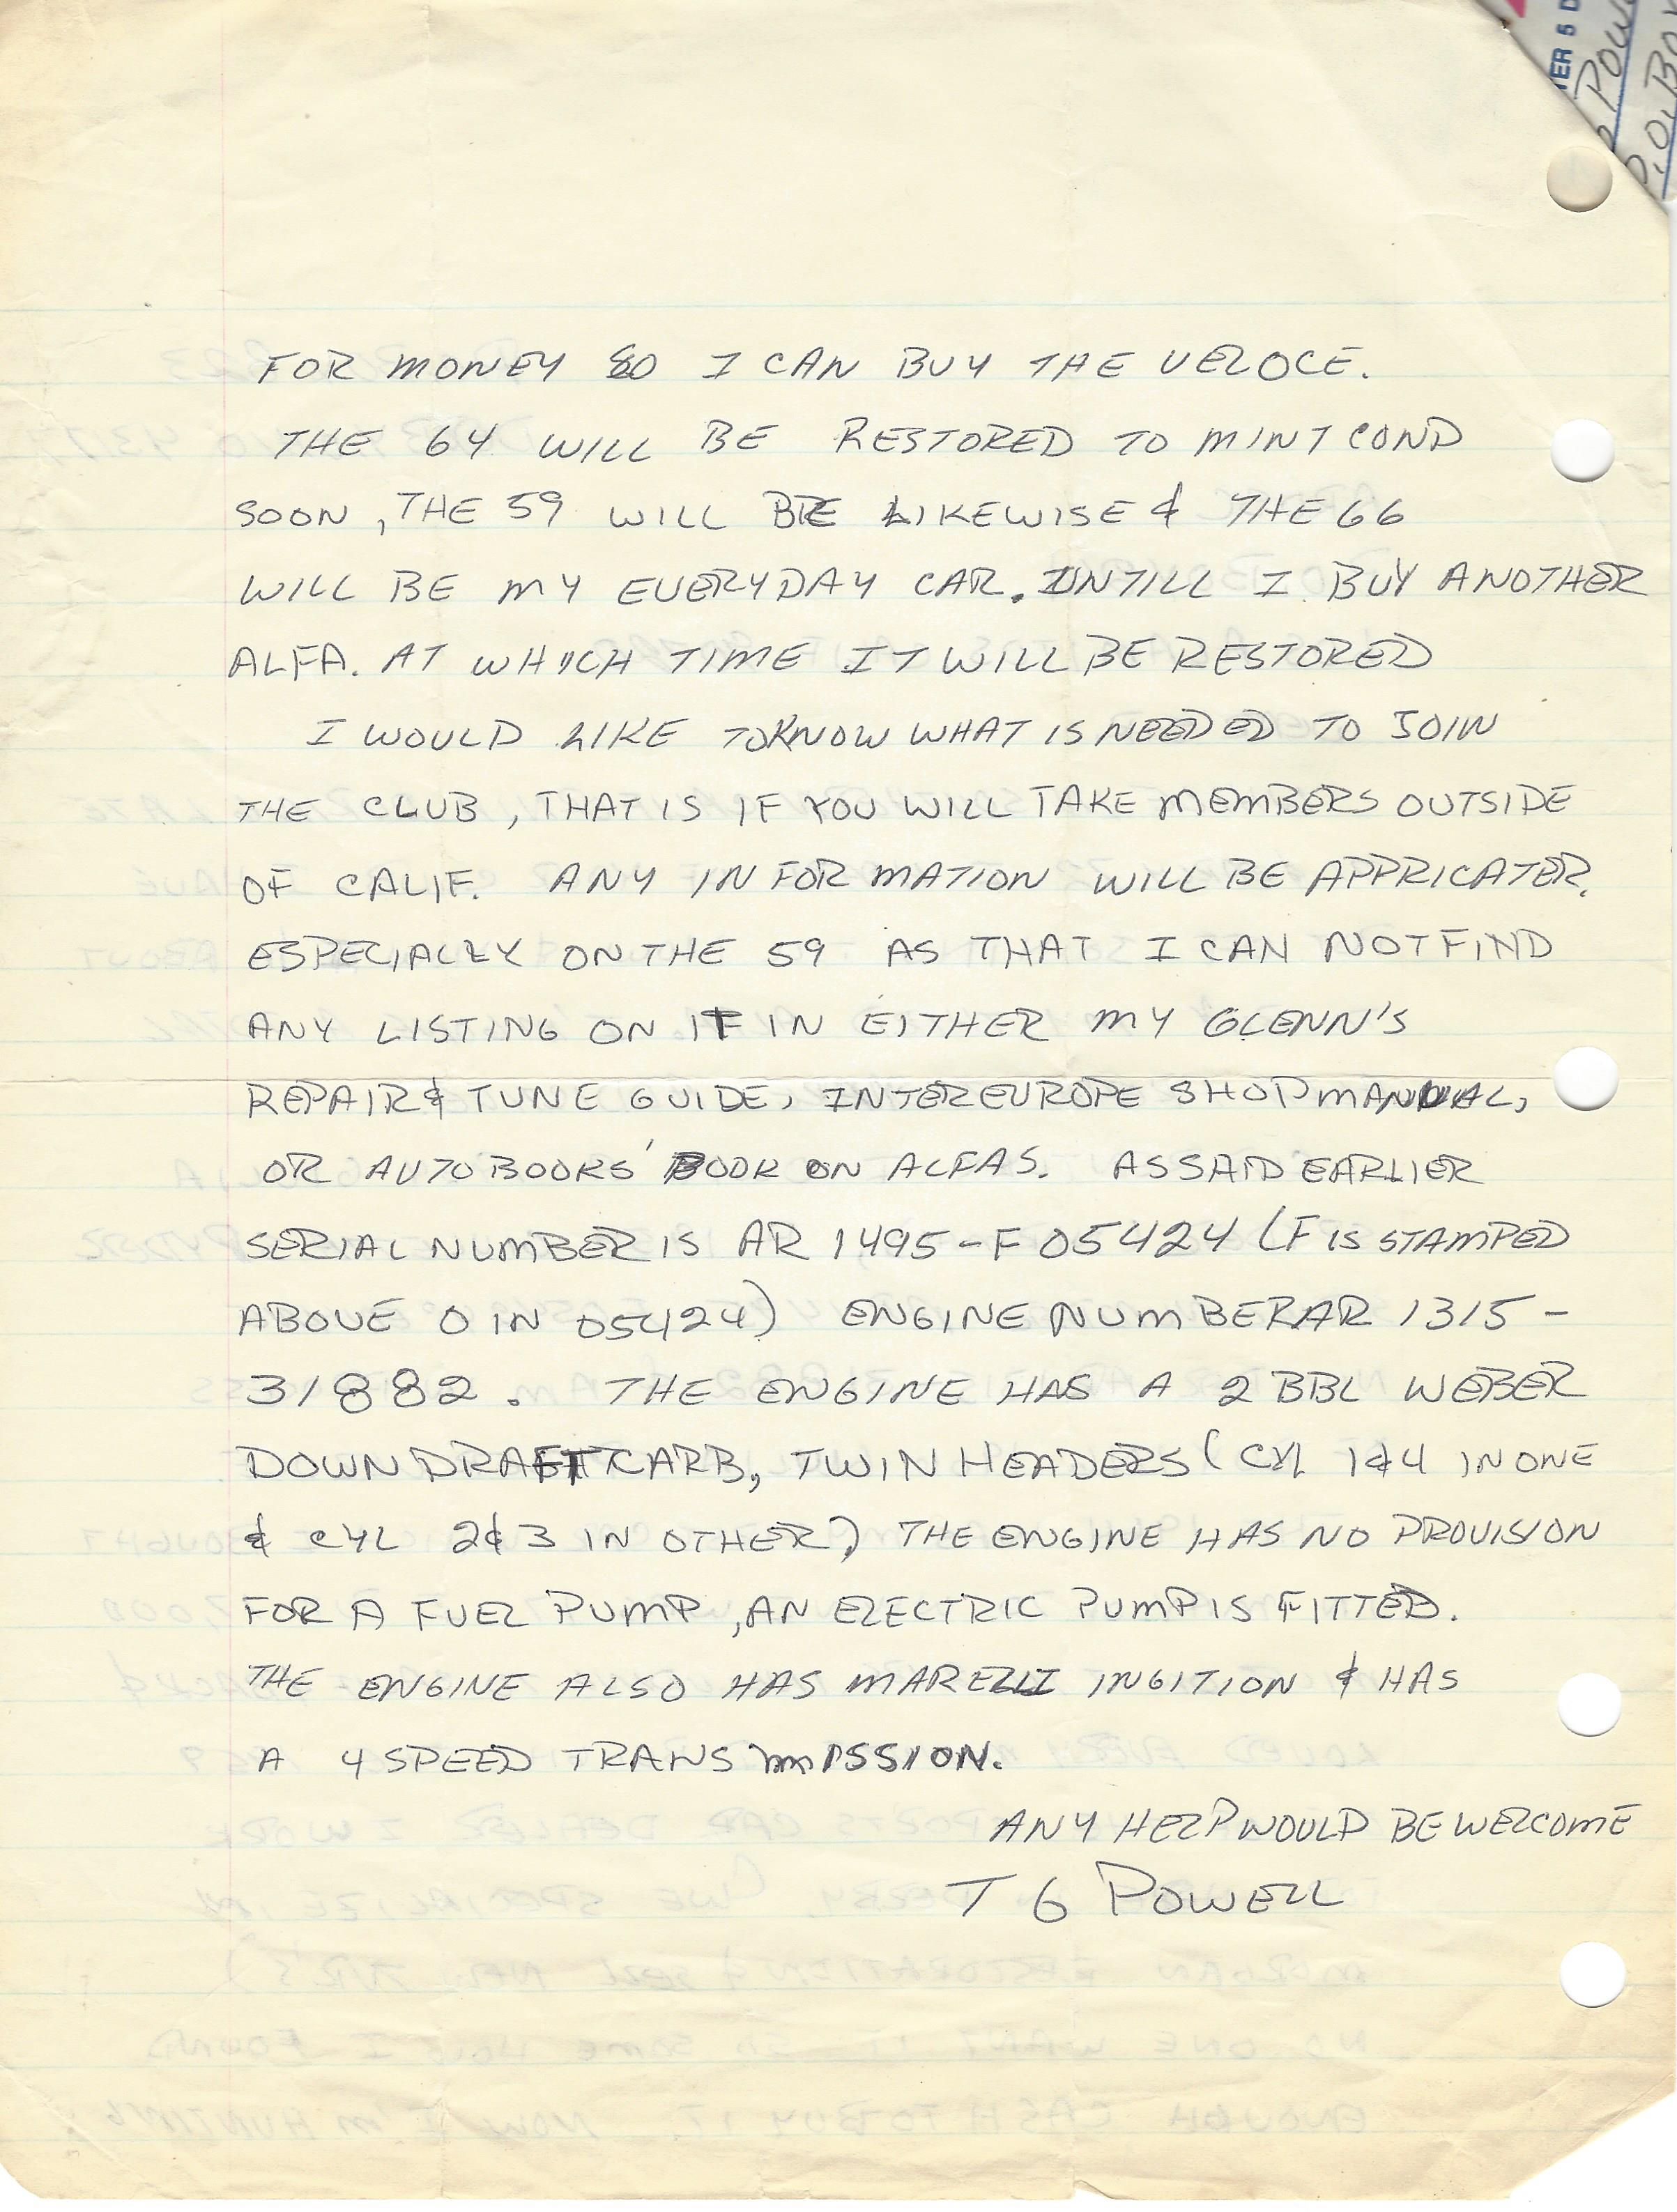 ER 5 D
POW
P.O. BOX
FOR MONEY SO I CAN BUY THE VELOCE.
THE 64 WILL BE RESTORED TO MINT COND
SOON, THE 59 WILL BE LIKEWISE & THE 66
WILL BE MY EVERYDAY CAR. UNTILL I BUY ANOTHER
ALFA. AT WHICH TIME IT WILL BE RESTORED
I WOULD LIKE TO KNOW WHAT IS NEEDED TO JOIN
THE CLUB, THAT IS IF YOU WILL TAKE MEMBERS OUTSIDE
OF CALIF. ANY INFORMATION WILL BE APPRICATED.
ESPECIALLY ON THE 59 AS THAT I CAN NOT FIND
ANY LISTING ON IT IN EITHER MY GLENN'S
REPAIR & TUNE GUIDE, INTEREUROPE SHOP MANUAL,
OR AUTOBOOKS' BOOK ON ALFAS. AS SAID EARLIER
SERIAL NUMBER IS AR 1495-F 05424 (F IS STAMPED
ABOVE 0 IN 05424) ENGINE NUMBER AR 1315-
31882. THE ENGINE HAS A 2 BBL WEBER
DOWN DRAFT CARB, TWIN HEADERS (CYL 1&4 IN ONE
& CYL 2&3 IN OTHER) THE ENGINE HAS NO PROVISION
FOR A FUEL PUMP, AN ELECTRIC PUMP IS FITTED.
THE ENGINE ALSO HAS MARELLI INGITION & HAS
A 4 SPEED TRANSMISSION.
ANY HELP WOULD BE WELCOME
T G POWELL